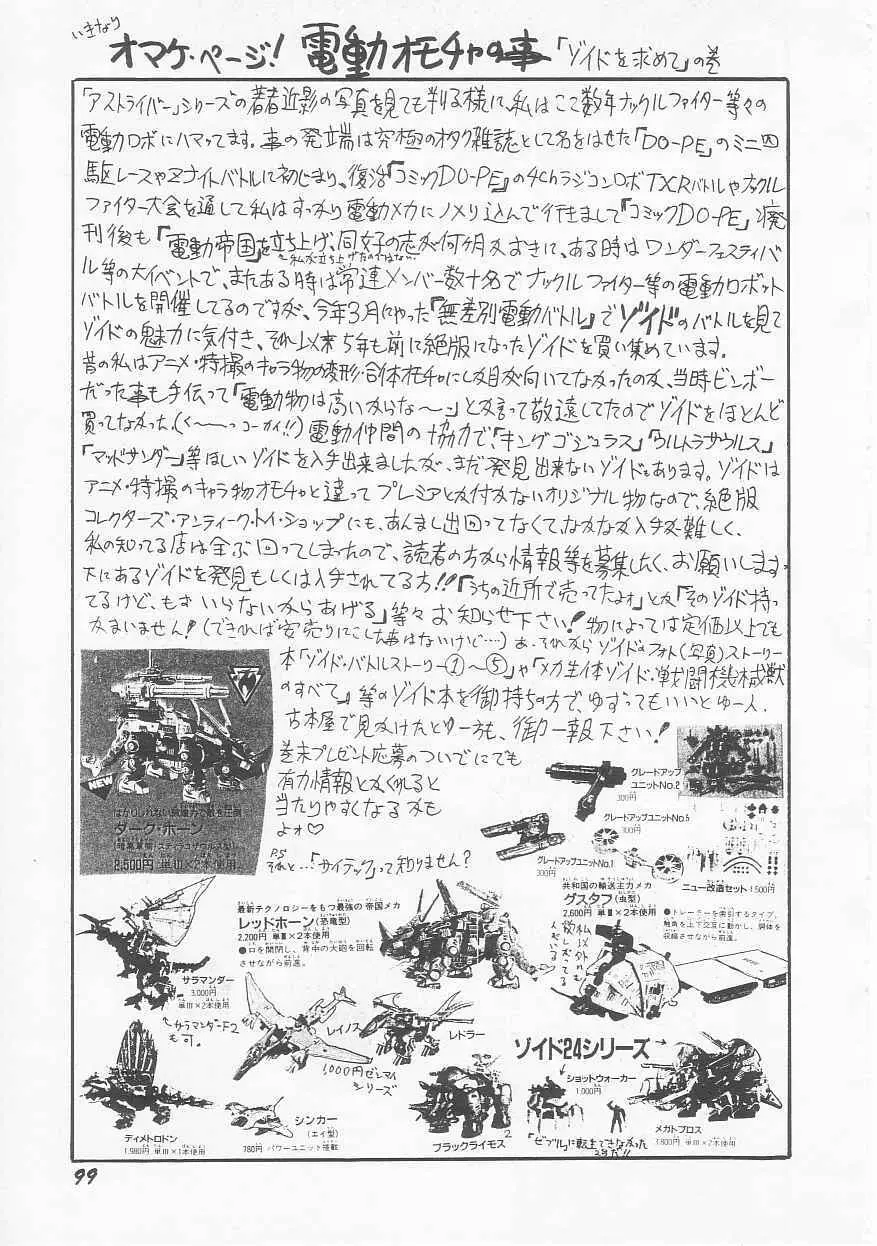 いきなり
オマケ・ページ! 電動オモチャの事 「ゾイドを求めて」の巻
「アストライバー」シリーズの著者近影の写真を見ても判る様に、私はここ数年ナックルファイター等々の
電動ロボにハマッてます。事の発端は究極のオタク雑誌として名をはせた「DO-PE」のミニ四
駆レースやZナイトバトルに初じまり、復活『コミックDO-PE』の4chラジコンロボTXRバトルやナックル
ファイター大会を通して私はすっかり電動メカにノメリ込んで行きまして『コミックDO-PE』廃
刊後も『電動帝国』を立ち上げ、同好の志が何ヶ月かおきに、ある時はワンダーフェスティバ
私が立ち上げたのではない…
ル等の大イベントで、またある時は常連メンバー数十名でナックルファイター等の電動ロボット
バトルを開催してるのですが、今年3月にやった『無差別電動バトル』でゾイドのバトルを見て
ゾイドの魅力に気付き、それ以来5年も前に絶版になったゾイドを買い集めています。
昔の私はアニメ・特撮のキャラ物の変形・合体オモチャにしか目が向いてなかったのと、当時ビンボー
だった事も手伝って「電動物は高いからな〜」とか言って敬遠してたのでゾイドをほとんど
買ってなかった。(く〜〜っコーカイ!!) 電動仲間の協力で、「キングゴジュラス」「ウルトラザウルス」
「マッドサンダー」等ほしいゾイドを入手出来ましたが、まだ発見出来ないゾイドもあります。ゾイドは
アニメ・特撮のキャラ物オモチャと違ってプレミアとか付かないオリジナル物なので、絶版
コレクターズ・アンティーク・トイ・ショップにも、あんまし出回ってなくて、なかなか入手が難しく、
私の知ってる店は全ぶ回ってしまったので、読者の方から情報等を募集したく、お願いします。
下にあるゾイドを発見もしくは入手されてる方!!「うちの近所で売ってたよォ」とか「そのゾイド持っ
てるけど、もぉいらないからあげる」等々お知らせ下さい! 物によっては定価以上でも
かまいません!(できれば安売りにこした事はないけど…) あ、それからゾイドのフォト(写真)ストーリー
本「ゾイド・バトルストーリー①〜⑤」や「メカ生体ゾイド・戦闘機械獣
のすべて」等のゾイド本を御持ちの方で、ゆずってもいいとゆー人、
古本屋で見かけたとゆー方も、御一報下さい!
巻末プレゼント応募のついでにでも
有力情報とかくれると
当たりやすくなるかも
よォ♡
P.S
それと…!「サイテック」って知りません?
NEW
はかりしれない破壊力で敵を圧倒
ダーク・ホーン
(暗黒軍団・スティラコザウルス型)
2,500円 単III×2本使用
グレードアップ
ユニットNo.2
300円
グレードアップユニットNo.5
300円
グレードアップユニットNo.1
300円
ニュー改造セット 1,500円
最新テクノロジーをもつ最強の帝国メカ
レッドホーン(恐竜型)
2,200円 単III×2本使用
●口を開閉し、背中の大砲を回転
させながら前進。
共和国の輸送主力メカ
グスタフ(虫型)
2,600円 単III×2本使用
●トレーラーを索引するタイプ。
触角を上下交互に動かし、胴体を
収縮させながら前進。
私以外にも
欲しがってる
人がいる
サラマンダー
3,000円
単III×2本使用
サラマンダーF2
も可。
レイノス
レドラー
1,000円ゼンマイ
シリーズ
ゾイド24シリーズ
ショットウォーカー
1,000円
メガトプロス
3,800円 単III×2本使用
シンカー
(エイ型)
780円 パワーユニット搭載
ディメトロドン
1,980円 単III×1本使用
ブラックライモス
「ゼブル」に転生できなかった
2号だ!!
99